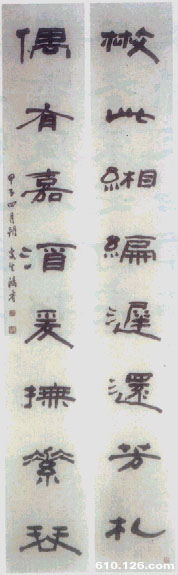 校此緗編遲還芳札
偶有嘉酒爰撫素琴
甲子四月朔
610.126.com